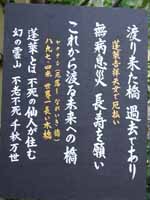 渡り来た橋 過去であり
蓬莱吉祥天女で厄払い
無病息災 長寿を願い
これから渡る未来への橋
八九七・四米 世界一長い木橋
蓬莱とは 不死の仙人が住む
幻の霊山 不老不死 千秋万世